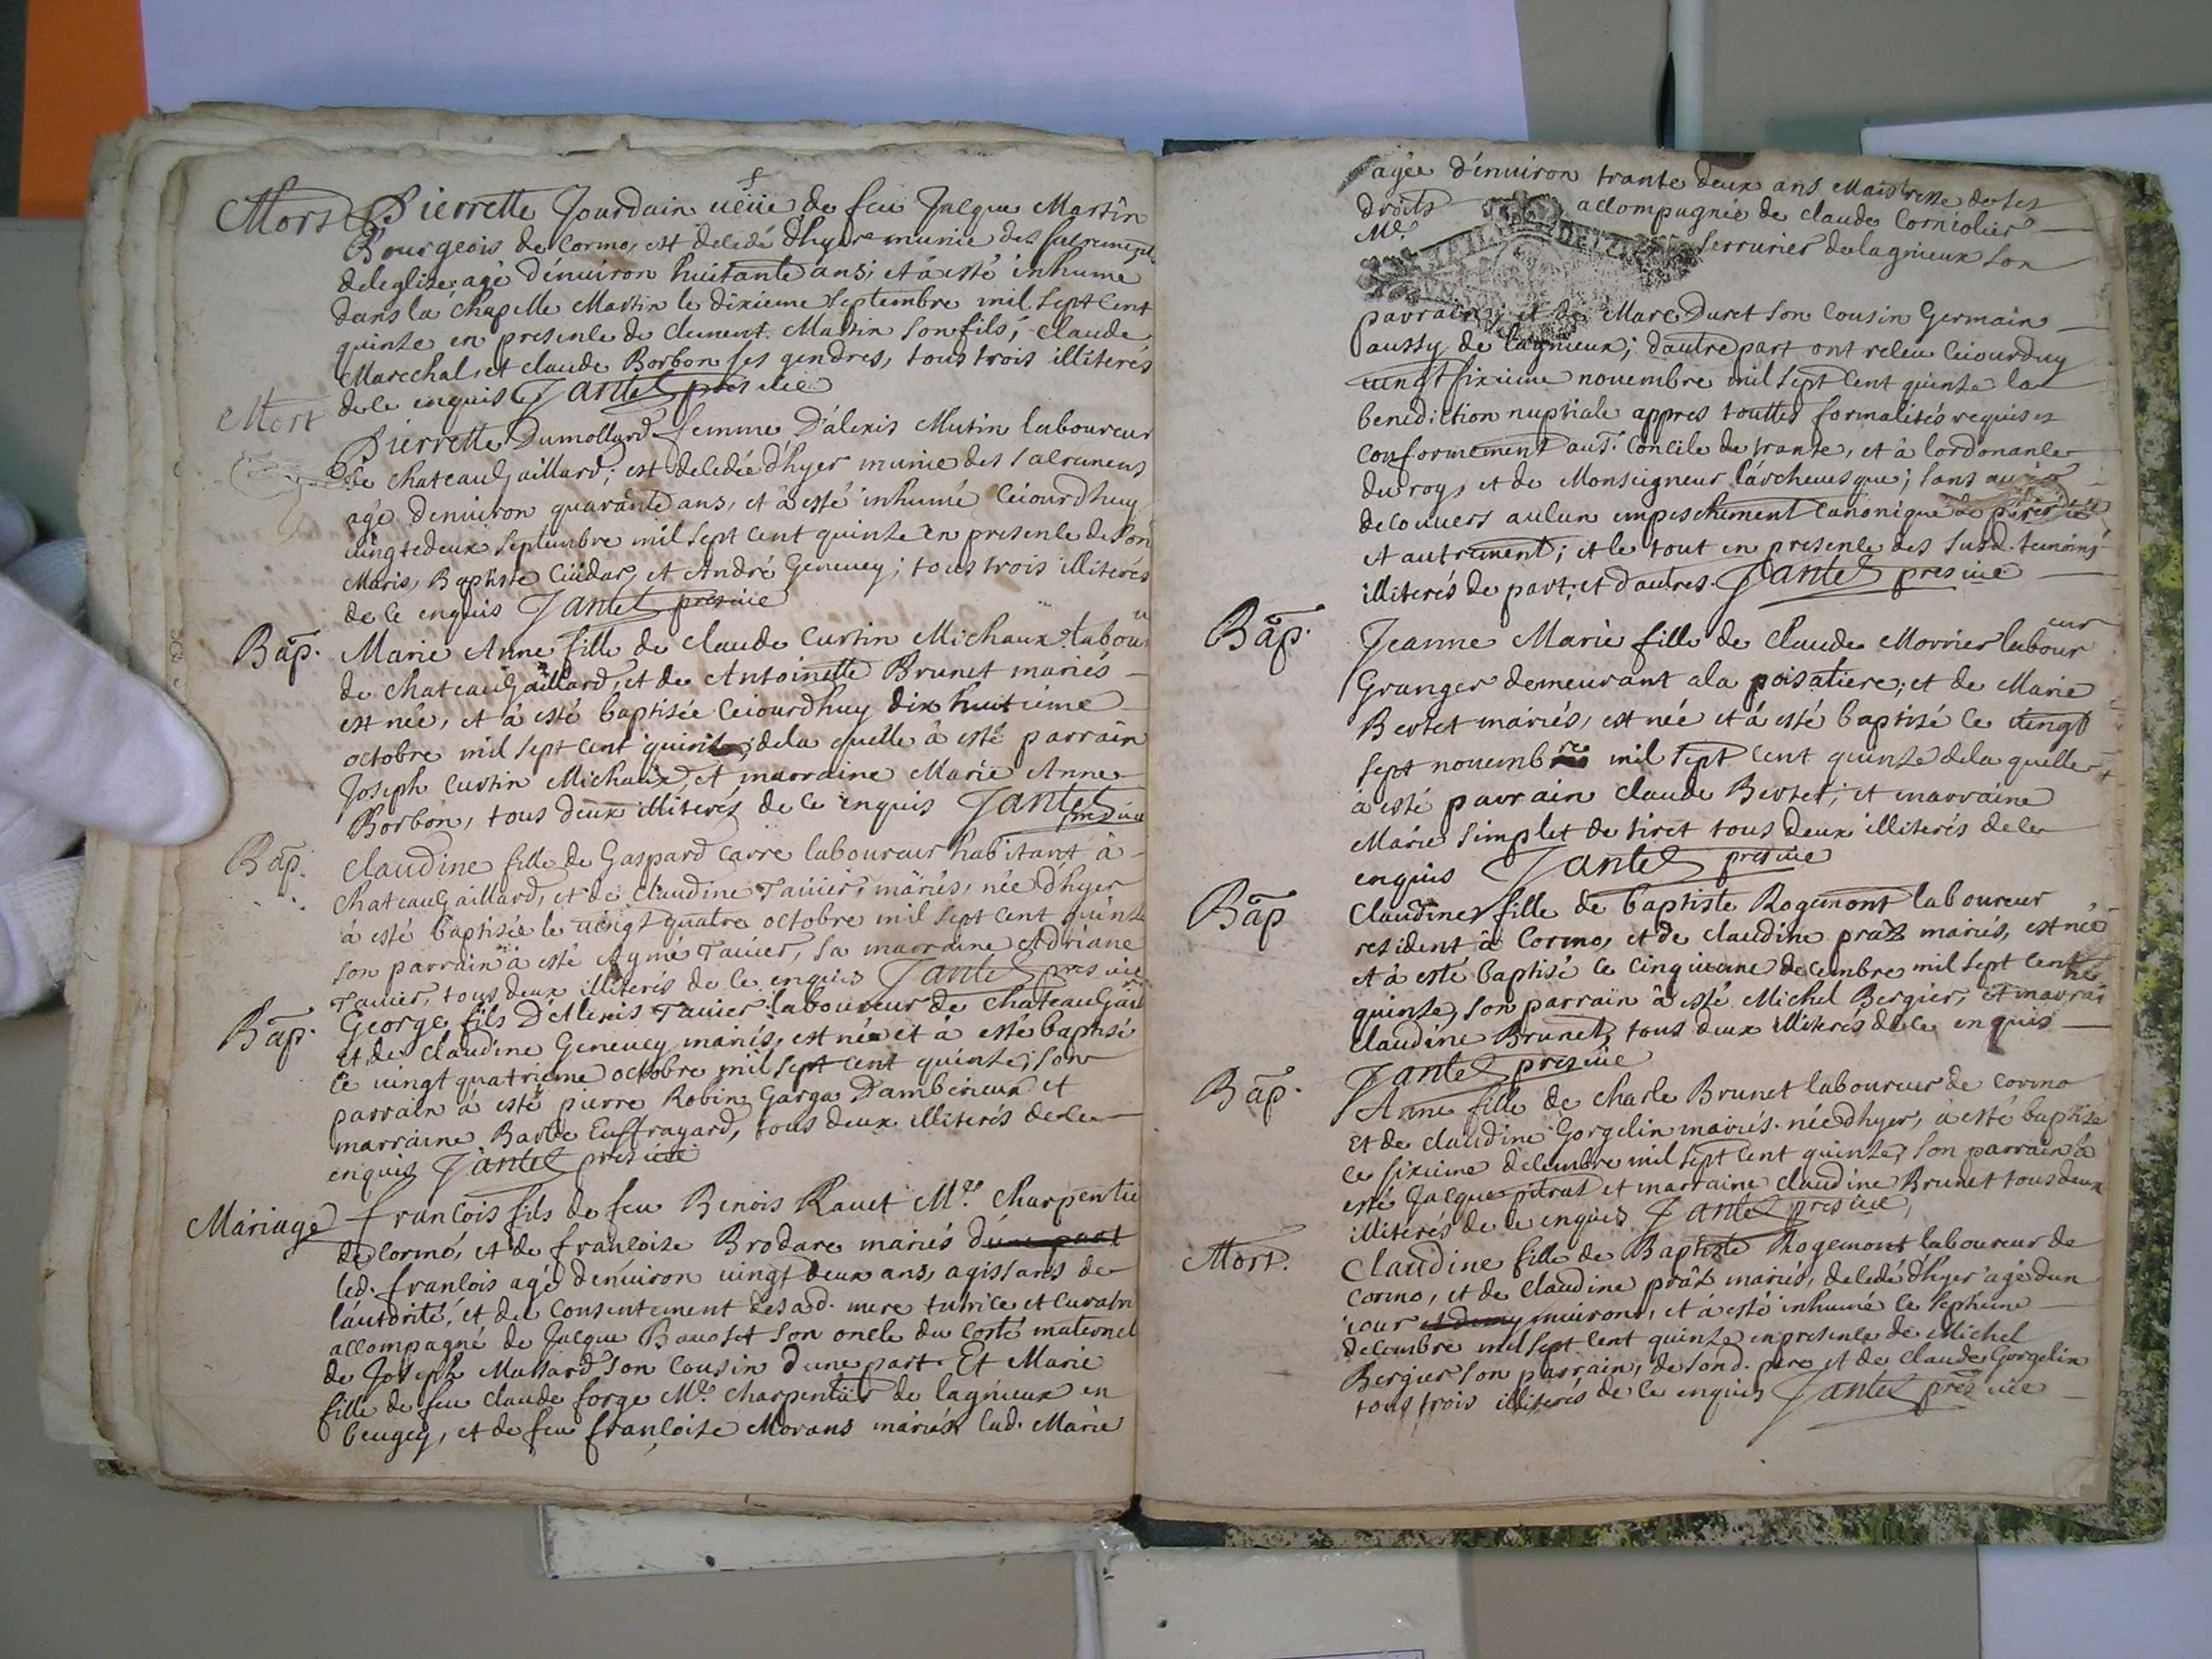 Mort Pierrette Jourdain ueüe de feu Jacque Martin
Bourgeois de Cormo, est decedé dhyer munie des sacrements
deleglize agé d'enuiron huitante ans, et à esté inhumé
dans la chapelle Martin le dixieme septembre mil sept cent
quinze en presence de clement Martin son fils, claude
Marechal, et claude Borbon ses gendres, tous trois illiterés
de ce enquis Jantet pres uic
Mort
Pierrette Dumollard femme D'alexis Mutin laboureur
de chateauGaillard; est decedée dhyer munie des sacremens
agé denuiron quarante ans, et à esté inhumé ceiourdhuy
uingtedeux septembre mil sept cent quinze en presence de son
Maris, Baptiste Ciudar, et André Geneuey; tous trois illiterés
de ce enquis Jantet pres uic
Bap. Marie Anne fille de claude Curtin Michaux labou
de chateauGaillard, et de Antoinette Brunet mariés
est née, et à esté baptisée ceiourdhuy dix huitieme
octobre mil sept cent quinze, dela quelle à esté parrain
Joseph Curtin Michaux, et marraine Marie Anne
Borbon, tous deux illiterés de ce enquis Jantet pres uic
Bap. Claudine fille de Gaspard Carre laboureur habitant à
chateauGaillard, et de claudine Tauier, mariés, née dhyer
à esté baptisée le uingt quatre octobre mil sept cent quinze
son parrain à esté Aymé Tauier, sa marraine Adriane
Tauier, tous deux illiterés de ce enquis Jantet pres uic
Bap. George fils D'Alexis Tauier laboureur de chateauGail
et de claudine Geneuey mariés, est née et à esté baptisé
le uingt quatrieme octobre mil sept cent quinze; son
parrain à esté pierre Robin Garga D'amberieux et
marraine Barbe Euffrayard, tous deux illiterés de ce
enquis Jantet pres uic
Mariage francois fils de feu Benois Rauet Mre Charpentie
de Cormó, et de francoise Brodare mariés d'une part
led. francois agé denuiron uingt deux ans, agissans de
lautorité, et du consentement de sad. mere tutrice et curatri
accompagné de Jacque Bauoset son oncle du costé maternel
de Joseph Mussard son cousin dune part. Et Marie
fille de feu claude forge Mre Charpentier de lagnieux en
beugey, et de feu francoise Morans mariés lad. Marie
agée d'enuiron trante deux ans Maistresse de ses
droits accompagnée de claude Corniolier
Me serrurier delagnieux son
parrain, et de Marc Duret son cousin Germain
aussy de lagnieux; dautre part ont receu ceiourdhuy
uingt sixieme nouembre mil sept cent quinze la
benediction nuptiale appres touttes formalités requises
conformement au St. Concile de trante, et à lordonance
du roy, et de Monseigneur l'archeuesque; sans auoir
decouuers aucun empeschement canonique
et autrement; et le tout en presence des susd. temoins
illiterés de part, et d'autres. Jantet pres uic
Bap. Jeanne Marie fille de Claude Morrier laboureur
Granger demeurant ala poisatiere, et de Marie
Bertet mariés, est née et à esté baptisé le uingt
sept nouembre mil sept cent quinze dela quelle
à esté parrain claude Bertet, et marraine
Marie Simplet de tiret tous deux illiterés de ce
enquis Jantet pres uic
Bap Claudine fille de baptiste Rogemont laboureur
resident à Cormo, et de claudine prâz mariés, est née
et à esté baptisé ce cinquieme decembre mil sept cent
quinze, son parrain à esté Michel Bergier, et marrai
claudine Brunet, tous deux illiterés de ce enquis
Jantet pres uic
Bap. Anne fille de charle Brunet laboureur de cormo
et de claudine Gorgelin mariés. née dhyer, à esté baptisé
ce sixieme decembre mil sept cent quinze, son parrain à
esté Jacque pitrat et marraine claudine Brunet tous deux
illiterés de ce enquis Jantet pres uic
Mort. Claudine fille de Baptiste Rogemont laboureur de
cormo, et de claudine prâz mariés, decedé dhyer agé dun
iour et demy enuirons, et à esté inhumé ce septieme
decembre mil sept cent quinze en presence de Michel
Bergier son parrain, de sond. pere et de claude Gorgelin
tous trois illiterés de ce enquis Jantet pres uic